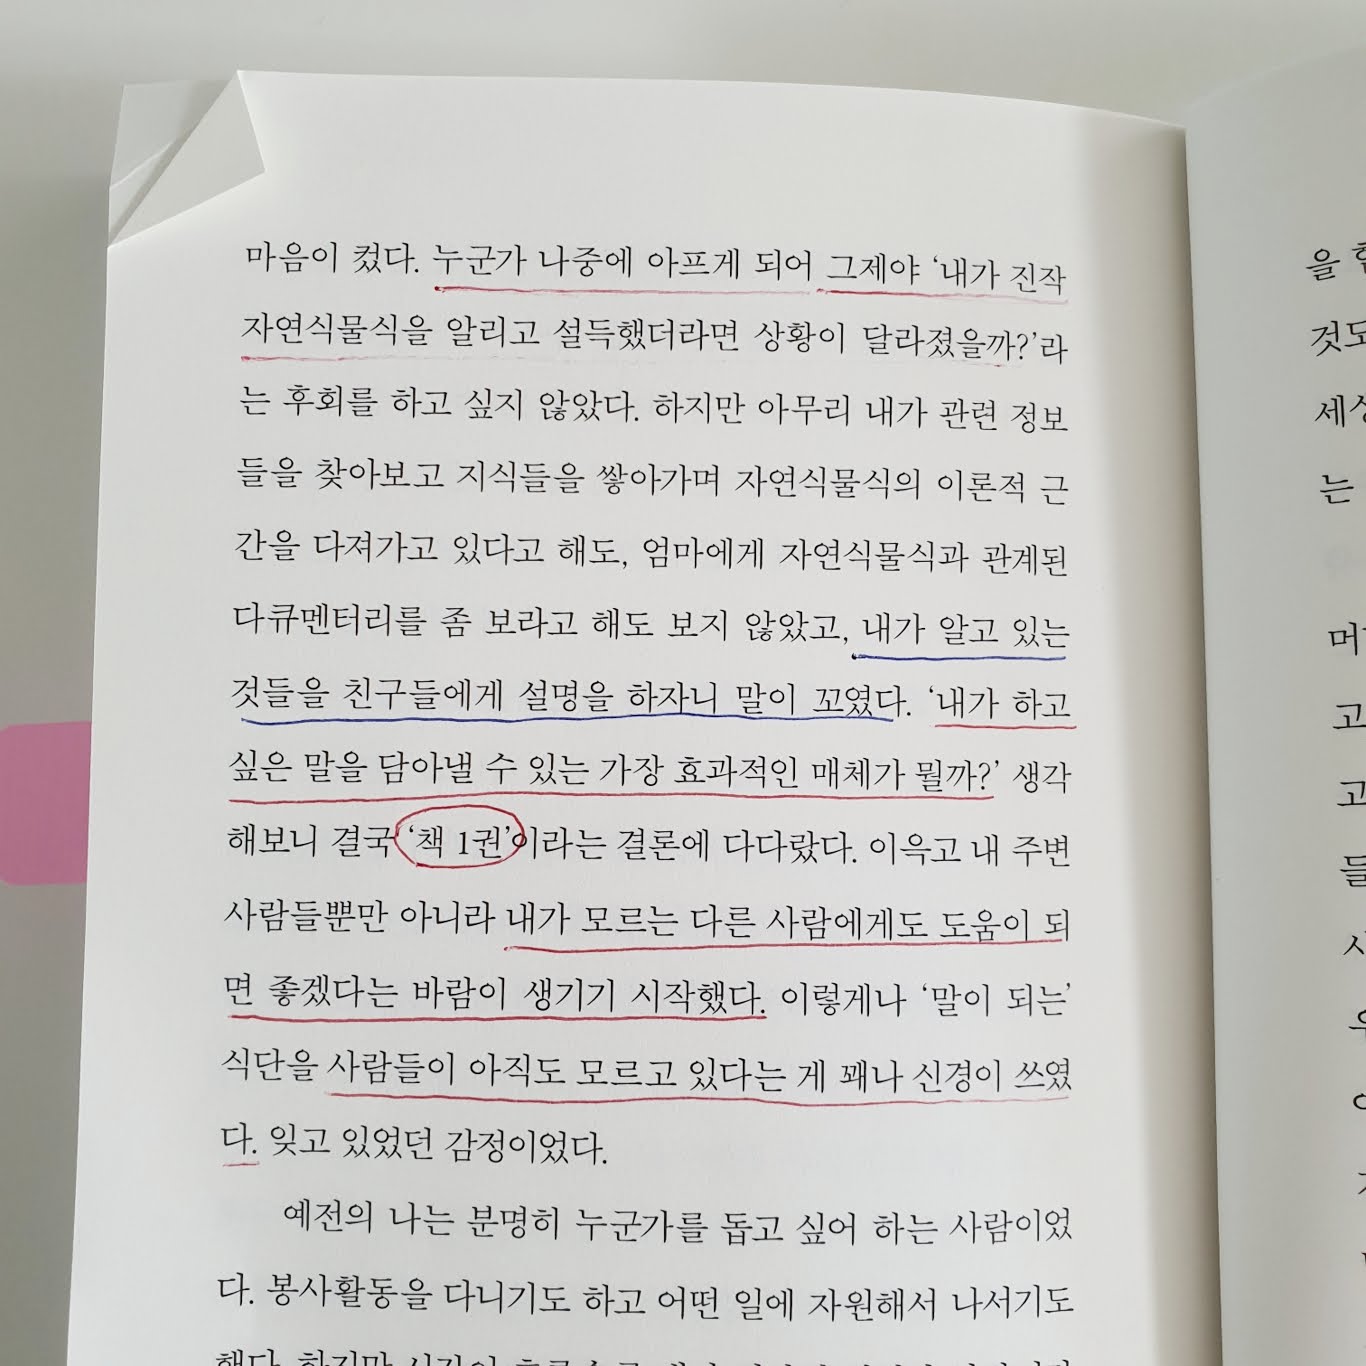 마음이 컸다. 누군가 나중에 아프게 되어 그제야 ‘내가 진작
자연식물식을 알리고 설득했더라면 상황이 달라졌을까?’라
는 후회를 하고 싶지 않았다. 하지만 아무리 내가 관련 정보
들을 찾아보고 지식들을 쌓아가며 자연식물식의 이론적 근
간을 다져가고 있다고 해도, 엄마에게 자연식물식과 관계된
다큐멘터리를 좀 보라고 해도 보지 않았고, 내가 알고 있는
것들을 친구들에게 설명을 하자니 말이 꼬였다. ‘내가 하고
싶은 말을 담아낼 수 있는 가장 효과적인 매체가 뭘까?’ 생각
해보니 결국 ‘책 1권’이라는 결론에 다다랐다. 이윽고 내 주변
사람들뿐만 아니라 내가 모르는 다른 사람에게도 도움이 되
면 좋겠다는 바람이 생기기 시작했다. 이렇게나 ‘말이 되는’
식단을 사람들이 아직도 모르고 있다는 게 꽤나 신경이 쓰였
다. 잊고 있었던 감정이었다.
예전의 나는 분명히 누군가를 돕고 싶어 하는 사람이었
다. 봉사활동을 다니기도 하고 어떤 일에 자원해서 나서기도
했다. 하지만
을
것도
세상
는
고
고
들